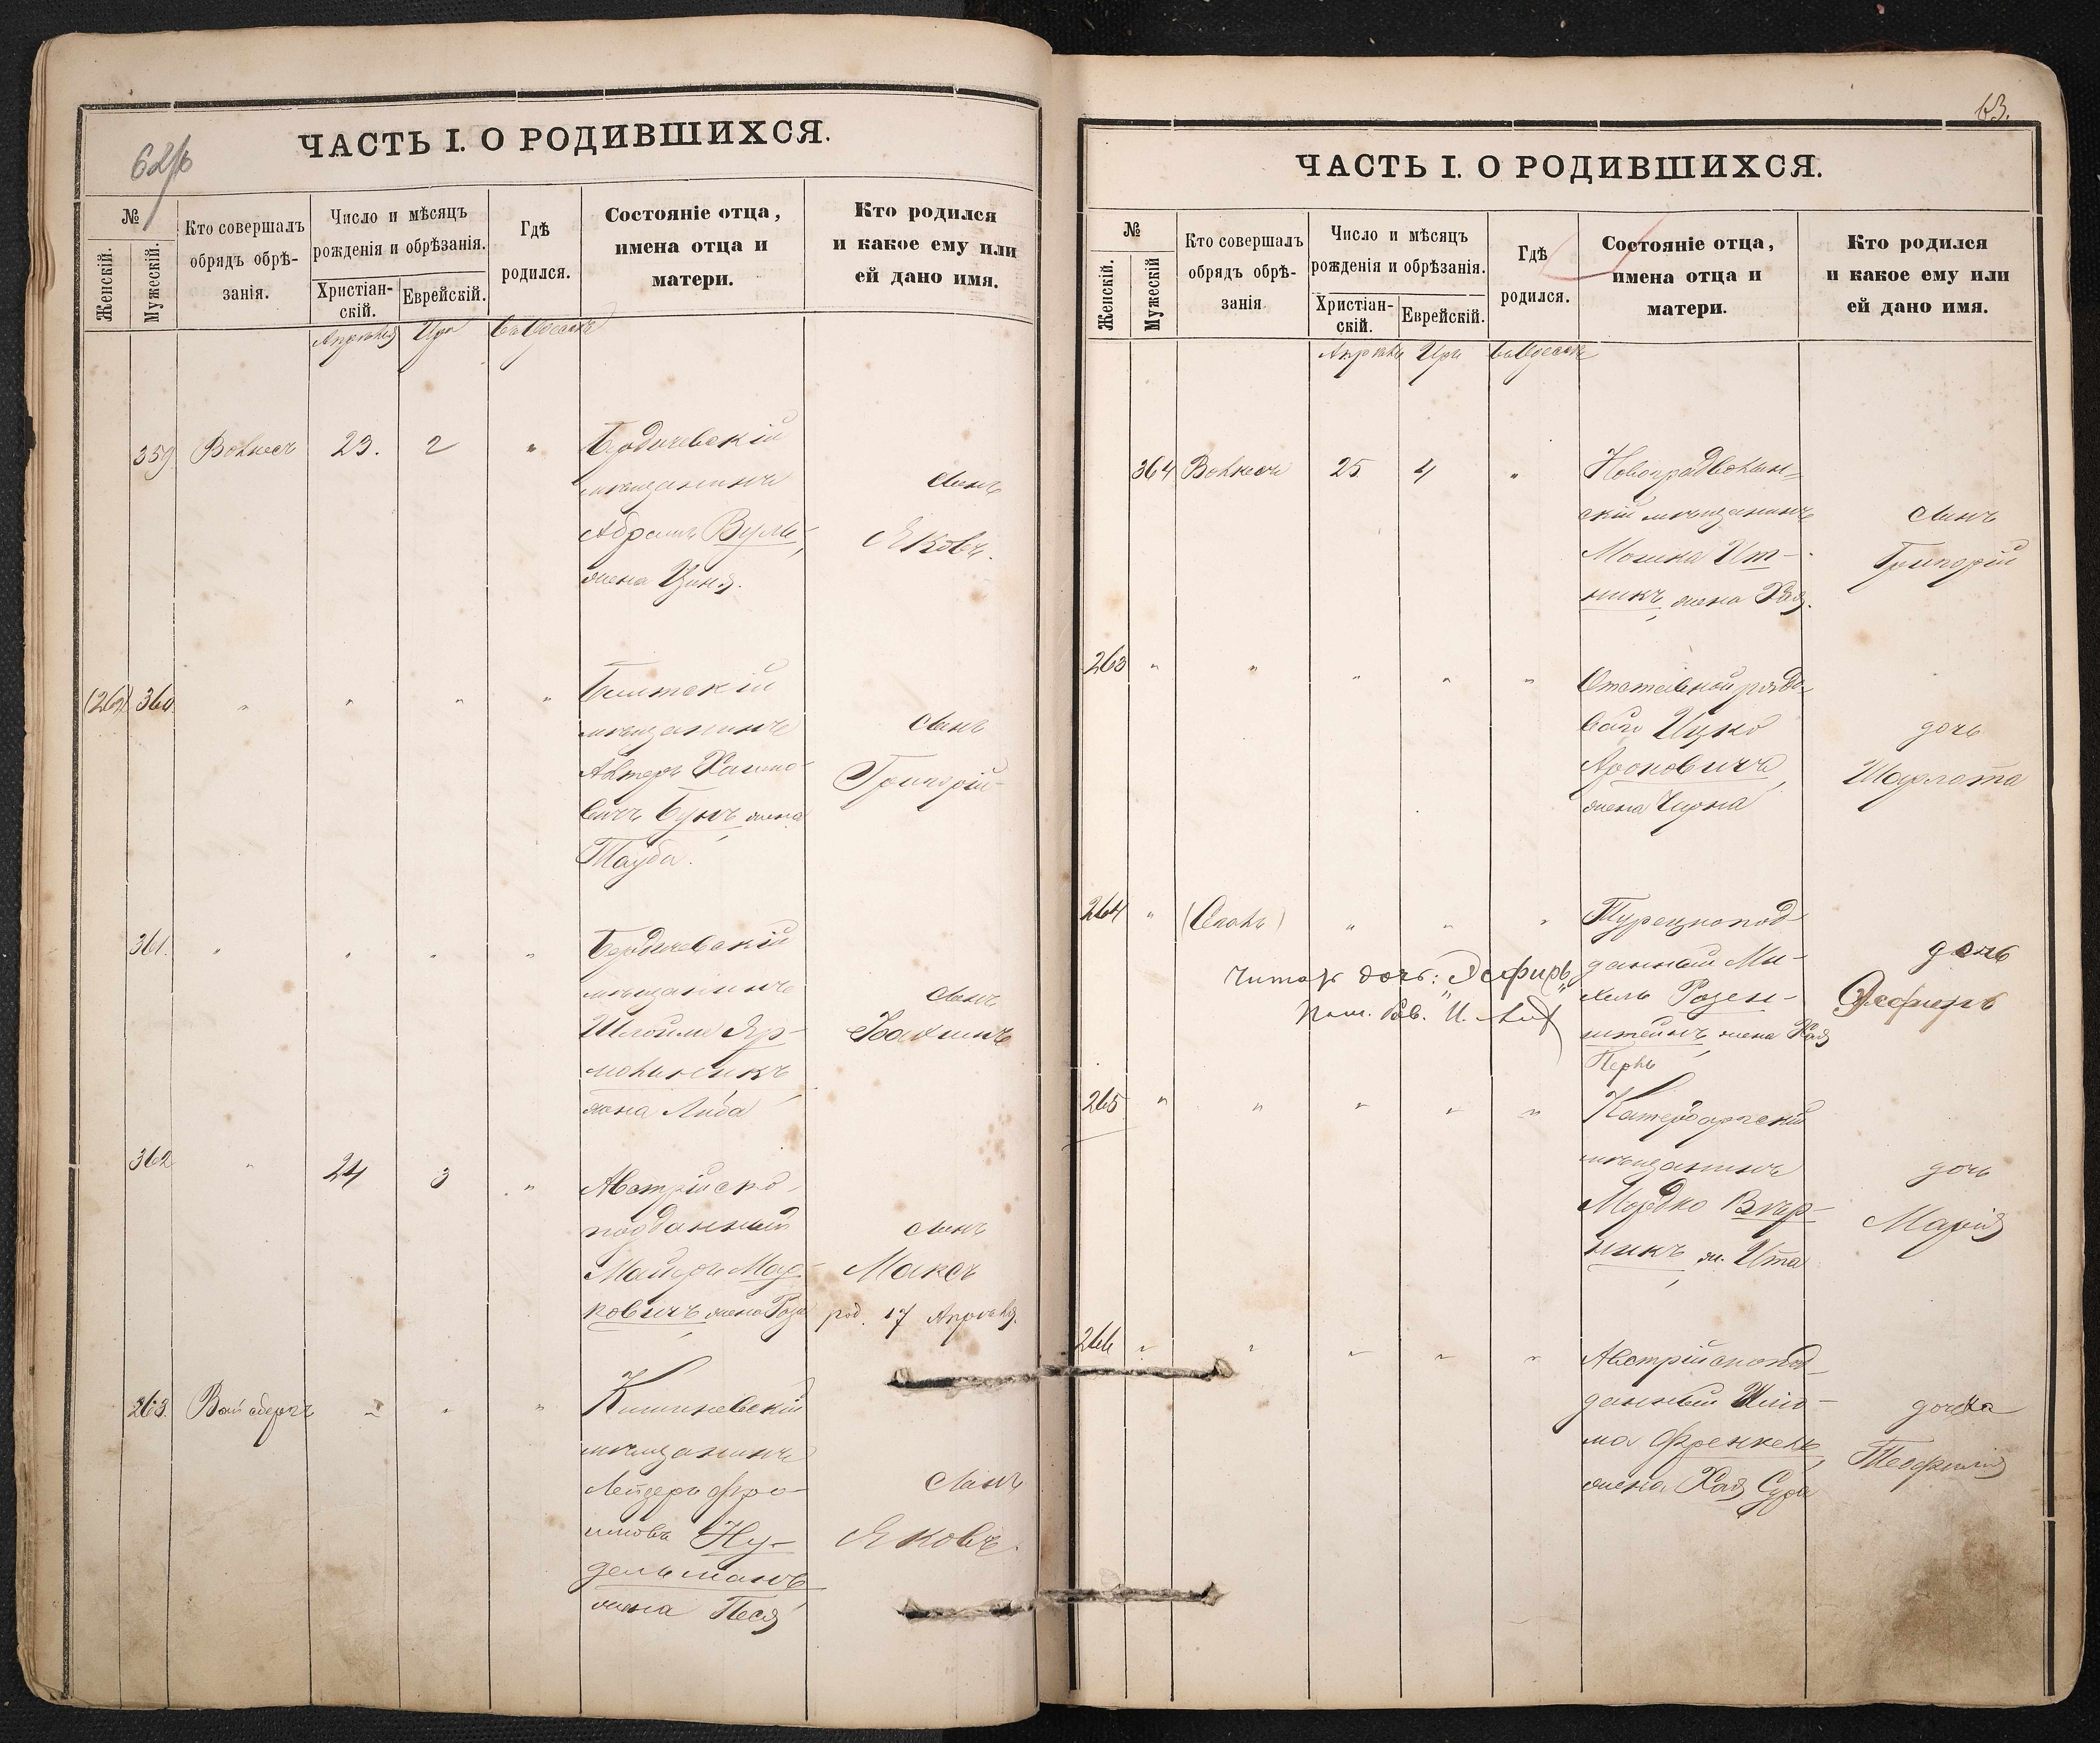 62/б
ЧАСТЬ I. О РОДИВШИХСЯ.
№
Женскій.
Мужескій.
Кто совершалъ
обрядъ обрѣ-
занія.
Число и мѣсяцъ
рожденія и обрѣзанія.
Христіан-
скій.
Еврейскій.
Гдѣ
родился.
Состояніе отца,
имена отца и
матери.
Кто родился
и какое ему или
ей дано имя.
Апрѣля Ира въ Одессѣ
359 Вольесъ 23. 2 "
Бердичевскій
мѣщанинъ
Абрамъ Вуль,
жена Цыня.
сынъ
Яковъ.
360. " " " "
мѣщанинъ
Альтеръ Хаимо-
вичъ Бунъ жена
Тауба.
сынъ
Григорій
361. " " " "
Бердичевскій
мѣщанинъ
Шлойма Яр-
мольникъ
жена Люба
сынъ
Іоахимъ
362 " 24 3 "
Австрійско-
подданный
Майоръ Мар-
ковичъ жена Роза
сынъ
Максъ
род. 17 Апрѣля.
263. Вайсбергъ " " "
Кишиневскій
мѣщанинъ
Лейзеръ Фро-
имовъ Ну-
дельманъ
жена Песя
сынъ
Яковъ.
63.
ЧАСТЬ I. О РОДИВШИХСЯ.
№
Женскій.
Мужескій
Кто совершалъ
обрядъ обрѣ-
занія
Число и мѣсяцъ
рожденія и обрѣзанія.
Христіан-
скій.
Еврейскій.
Гдѣ
родился.
Состояніе отца,
имена отца и
матери.
Кто родился
и какое ему или
ей дано имя.
Апрѣль Иръ въ Одессѣ
364 Вольесъ 25 4 "
Новоградволын-
скій мѣщанинъ
Мошка Ит-
никъ, жена Хая.
сынъ
Григорій
263 " " " " "
Отставной рядо-
вой Ицко
Ароновичъ,
жена Чарна
дочь
Шарлота
264 " " " "
Турецкопод-
данный Ми-
хель Розен-
штейнъ, жена Хая
Перль
дочь
Эсфирь
Читать дочь: „Эсфирь„
265 " " " " "
мѣщанинъ
Мордко Вѣр-
никъ, ж. Ита
дочь
Марія
266 " " " " "
Австрійскопод-
данный Шлю-
ма Френкель,
жена Хая Сура
дочка
Теофилія